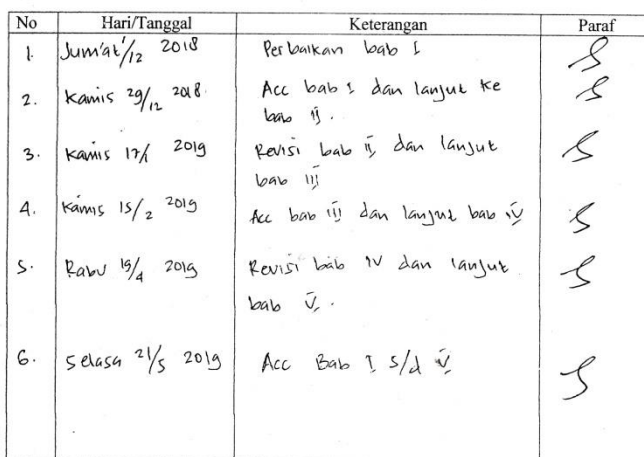 No Hari/Tanggal Keterangan Paraf
1. Jum'at 1/12 2018 Perbaikan bab I
2. Kamis 29/12 2018. Acc bab I dan lanjut ke
bab II.
3. Kamis 17/1 2019 Revisi bab II dan lanjut
bab III
4. Kamis 15/2 2019 Acc bab III dan lanjut bab IV
5. Rabu 19/4 2019 Revisi bab IV dan lanjut
bab V.
6. Selasa 21/5 2019 Acc Bab I s/d V